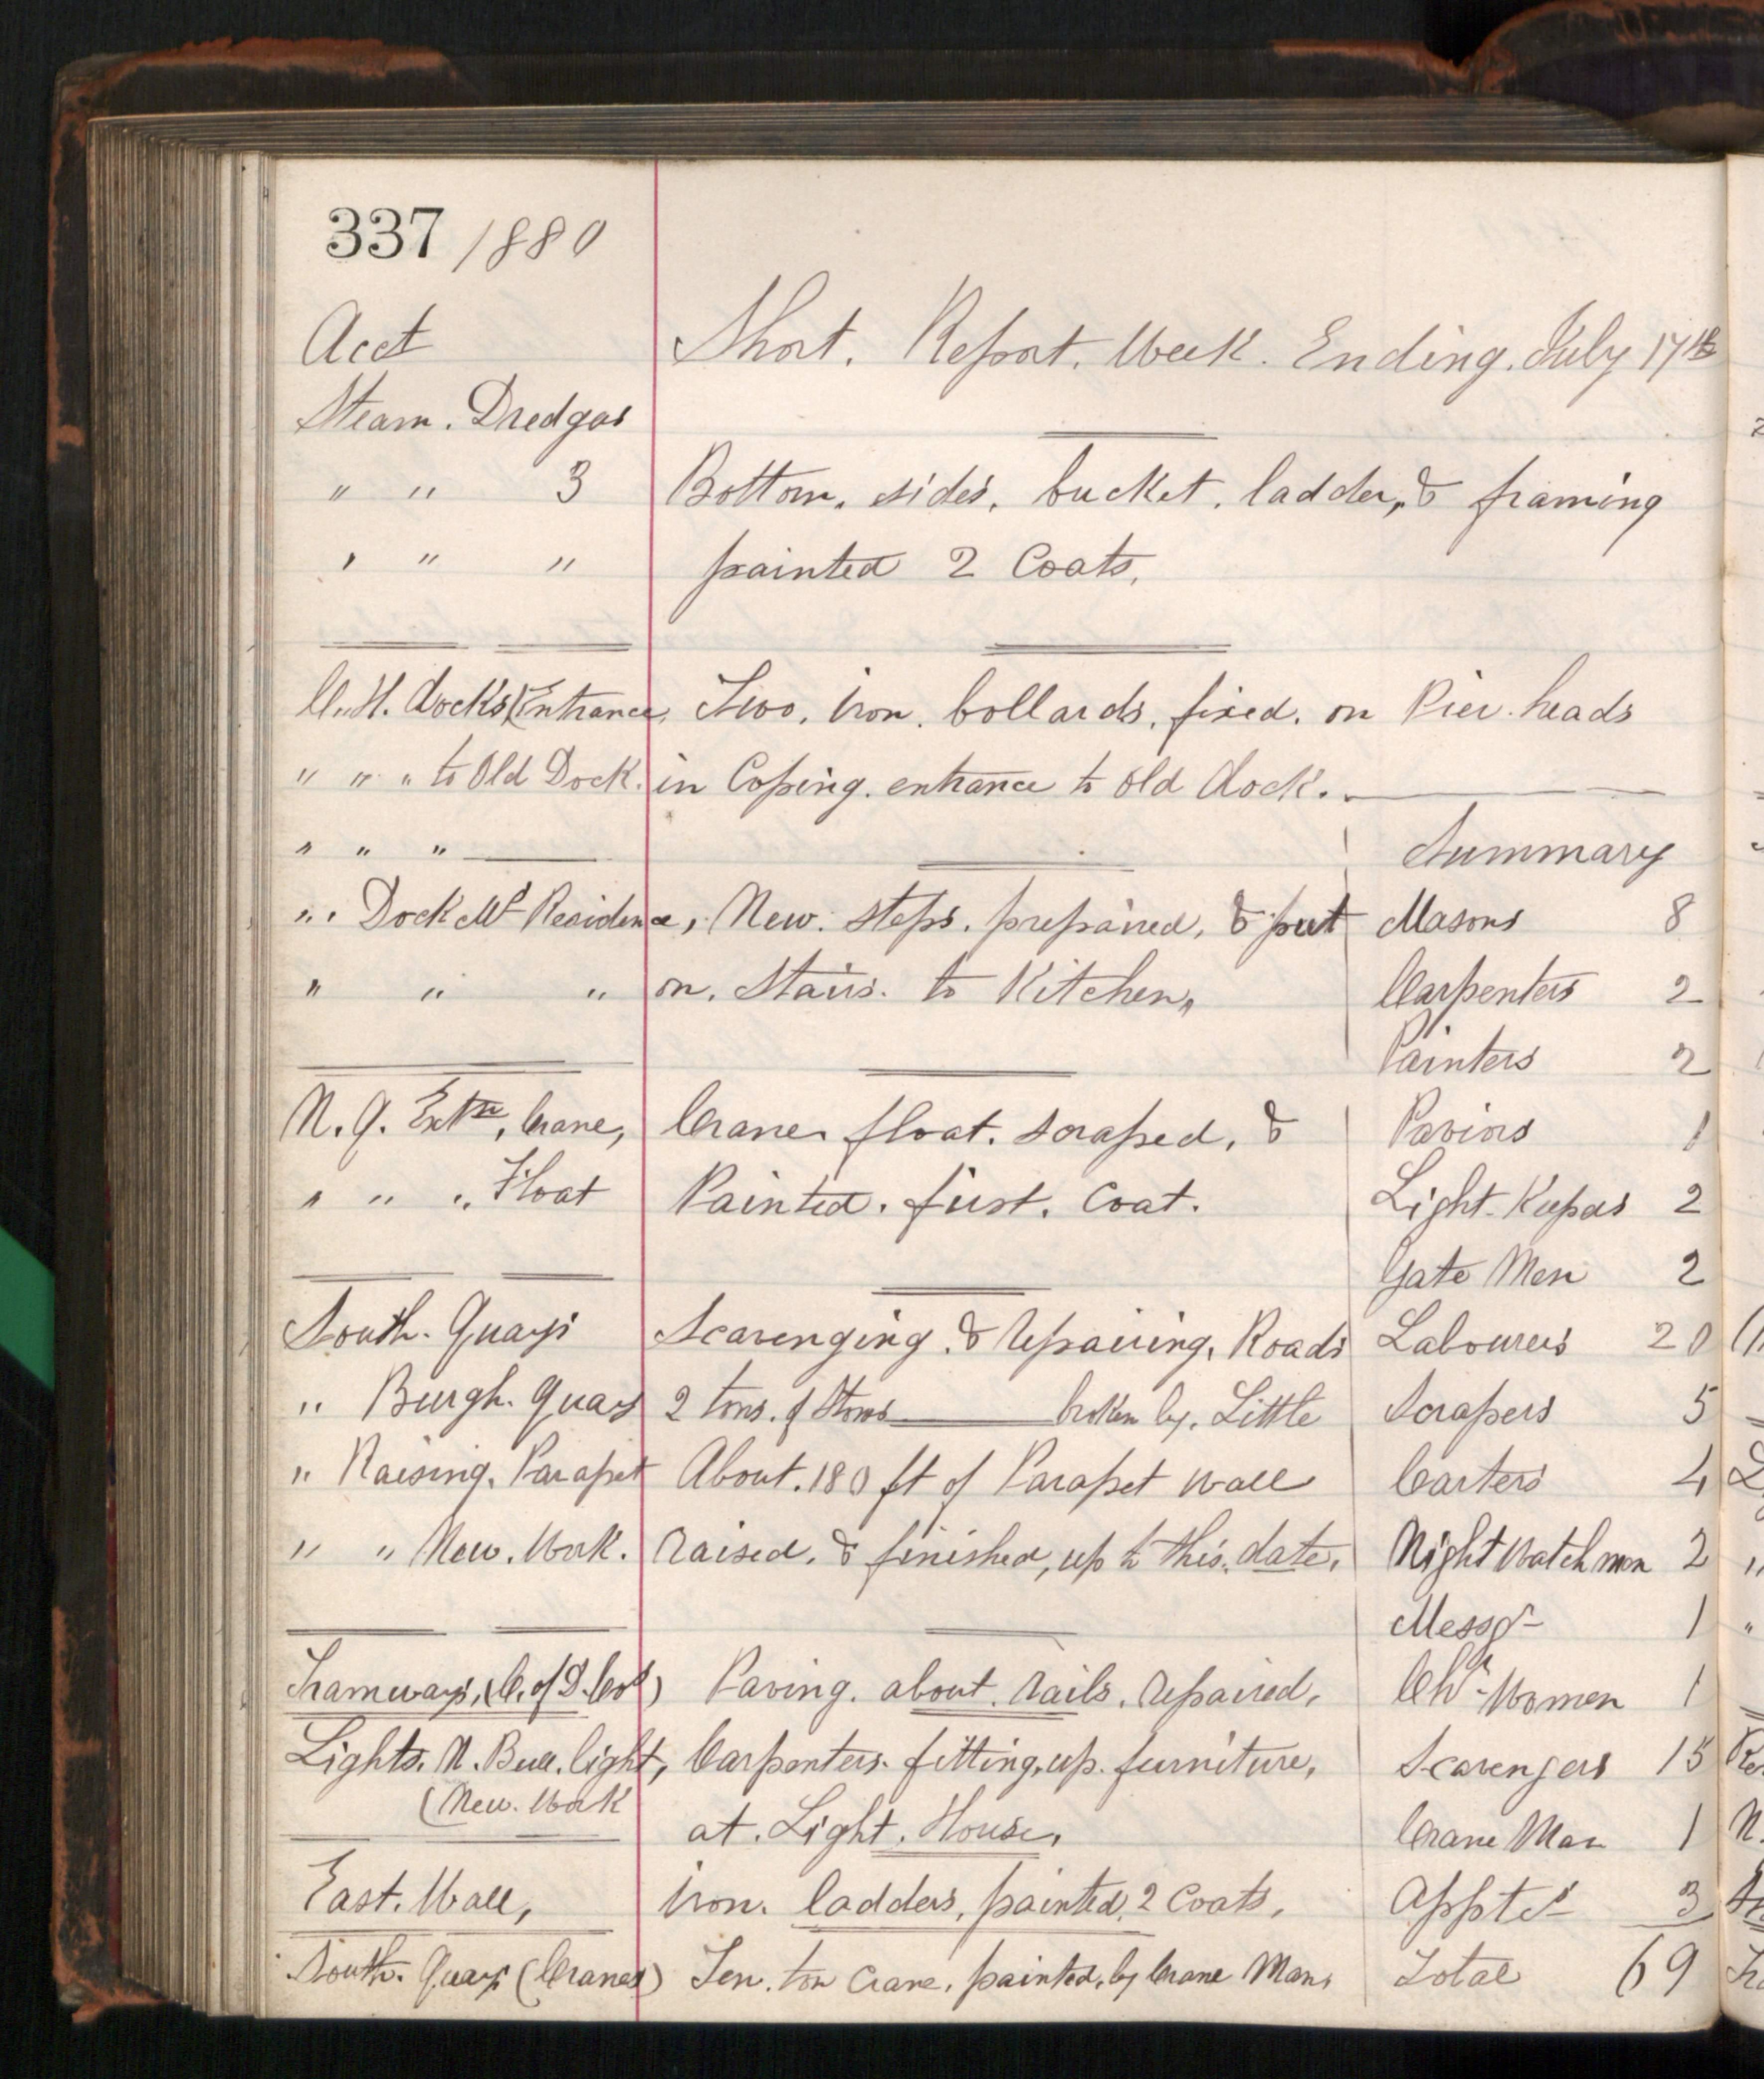 337 1880
Acct Short. Report. Week. Ending. July 17th
Steam. Dredger
" " 3 Bottom. sides. bucket. ladder, & framing
" " " painted 2 Coats.
C.H. Docks (Entrance Two. iron. bollards. fixed. on Pier. heads
" " " to Old Dock. in Coping. entrance to Old dock.
" " " Summary
" " Dock Mr Residence, New. steps. prepaired, & put Masons 8
" " " on. Stairs. to Kitchen, Carpenters 2
Painters 2
N.Q. Extn, Crane, Crane float. scraped, & Paviors 1
" " " Float Painted. first. Coat. Light-Keepers 2
Gate Men 2
South. Quays Scavenging. & repairing. Roads Labourers 20
" Burgh. Quay 2 tons. of Stones broken by. Little Scrapers 5
" Raising. Parapet About. 180 ft of Parapet wall Carters 4
" " New. Work. raised. & finished, up to this. date. Night Watch men 2
Messgr 1
Tramways, (C. of D. Cos) Paving. about. rails. repaired. Chr Women 1
Lights. N. Bull. light, Carpenters. fitting. up. furniture, Scavengers 15
(New. Work at. Light. House. Crane Man 1
East. Wall, Iron. ladders, painted 2 Coats, Apptes 3
South. Quays (Cranes) Ten. ton Crane. painted. by Crane Man. Total 69